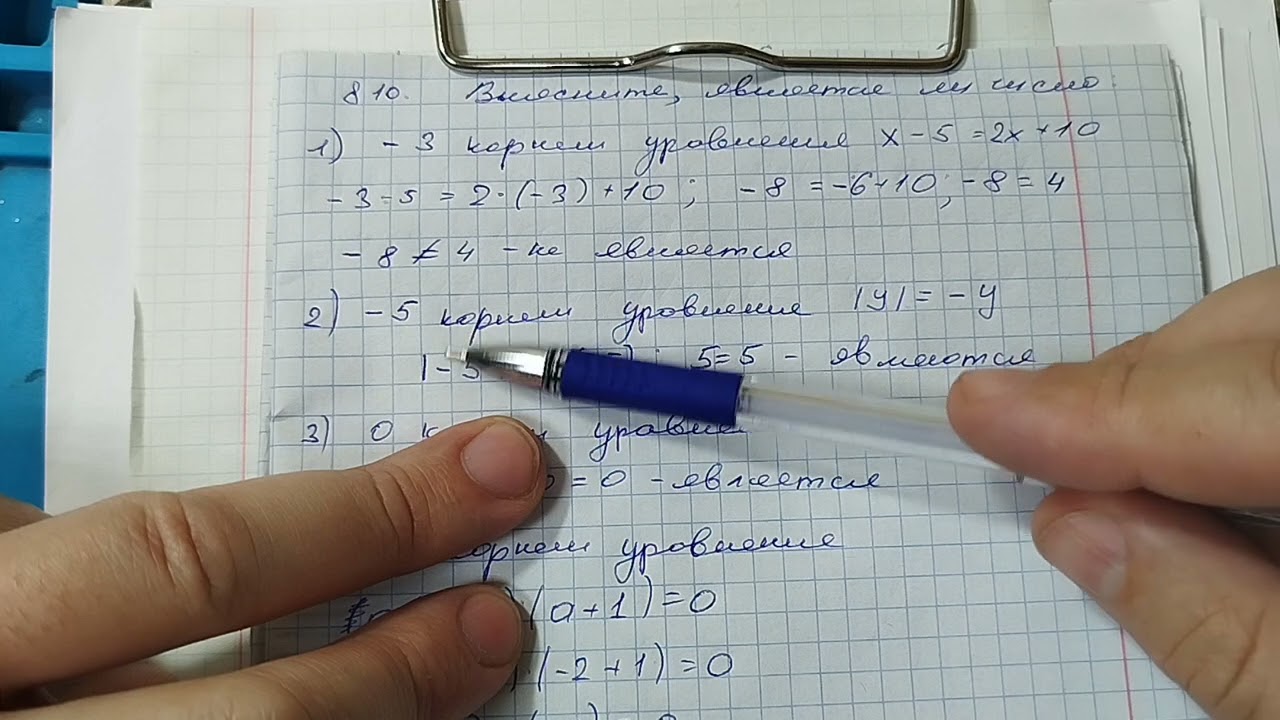 810. Выясните, является ли число:
1) -3 корнем уравнения x-5=2x+10
-3-5=2·(-3)+10; -8=-6+10; -8=4
-8≠4 - не является
2) -5 корнем уравнения |y|=-y
|-5 5=5 - является
3) 0
=0 - является
корнем уравнения
(a+1)=0
·(-2+1)=0